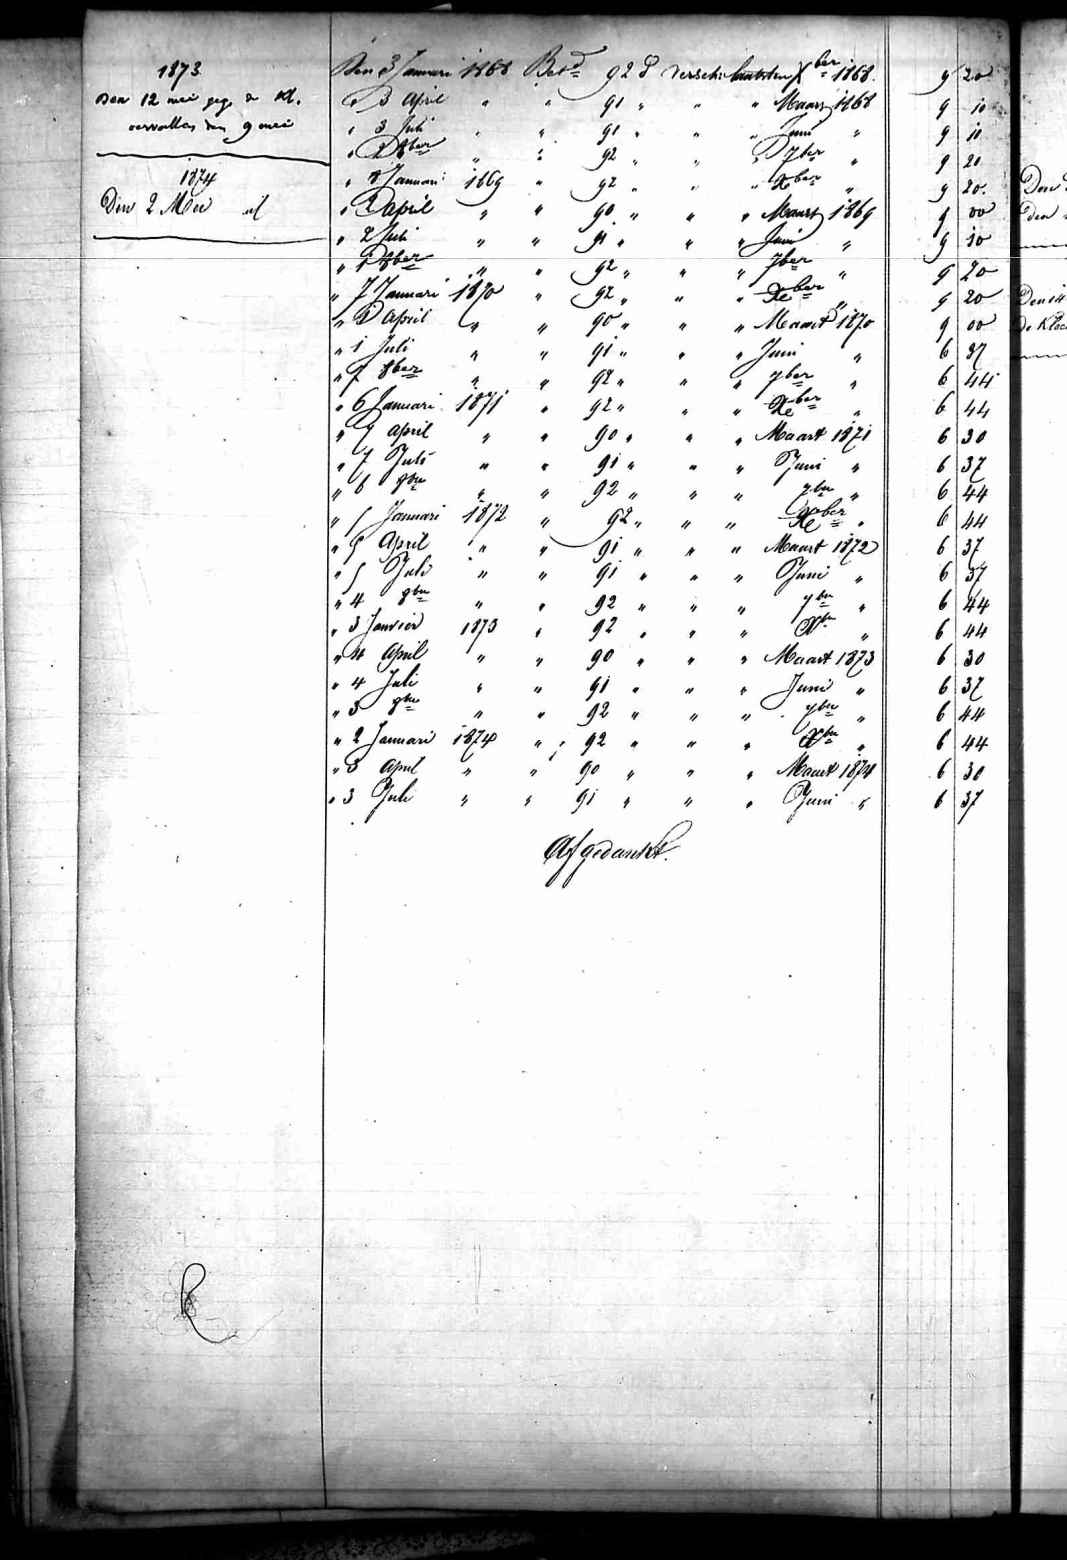 1873
Den 12 mei gege a Kl.
vervallen den 9 mei
1874
Den 2 Mei
Den 3 Januari 1868 Betd 92 d verschulachten Xber 1868. 9 20
" 3 April " " 91 " " " Maart 1868 9 10
" 3 Juli " " 91 " " " Juni " 9 10
" 2 8ber " " 92 " " " 7ber " 9 20
" 8 Januari 1869 " 92 " " " Xber " 9 20.
" 2 april " " 90 " " " Maart 1869 9 00
" 2 Juli " " 91 " " " Juni " 9 10
" 1 8ber " " 92 " " " 7ber " 9 20
" 7 Januari 1870 " 92 " " " Xber " 9 20
" 1 April " " 90 " " " Maart 1870 9 00
" 1 Juli " " 91 " " " Juni " 6 37
" 7 8ber " " 92 " " " 7ber " 6 44
" 6 Januari 1871 " 92 " " " Xber " 6 44
" 7 april " " 90 " " " Maart 1871 6 30
" 7 Juli " " 91 " " " Juni " 6 37
" 6 8ber " " 92 " " " 7ber " 6 44
" 5 Januari 1872 " 92 " " " Xber " 6 44
" 5 April " " 91 " " " Maart 1872 6 37
" 5 Juli " " 91 " " " Juni " 6 37
" 4 8ber " " 92 " " " 7ber " 6 44
" 3 Janvier 1873 " 92 " " " Xber " 6 44
" 4 April " " 90 " " " Maart 1873 6 30
" 4 Juli " " 91 " " " Juni " 6 37
" 3 8ber " " 92 " " " 7ber " 6 44
" 2 Januari 1874 " 92 " " " Xber " 6 44
" 3 April " " 90 " " " Maart 1874 6 30
" 3 Juli " " 91 " " " Juni " 6 37
Afgedankt.
Den
den
Den
de